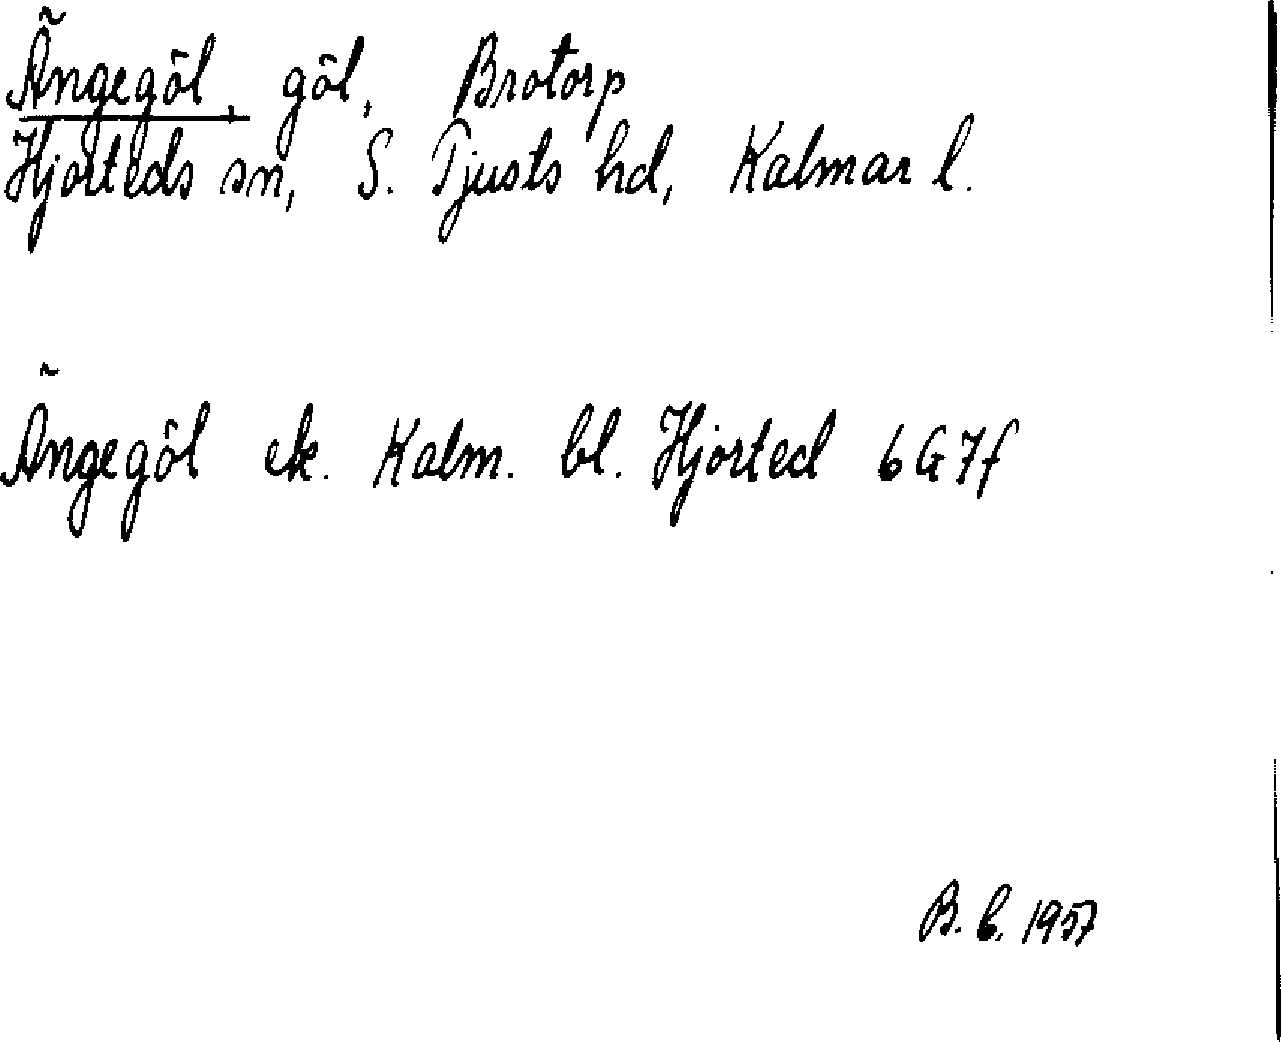 Ängegöl, göl, Brotorp
Hjorteds sn, S. Tjusts hd, Kalmar l.
Ängegöl ek. Kalm. bl. Hjorted 6G7f
B. b. 1957